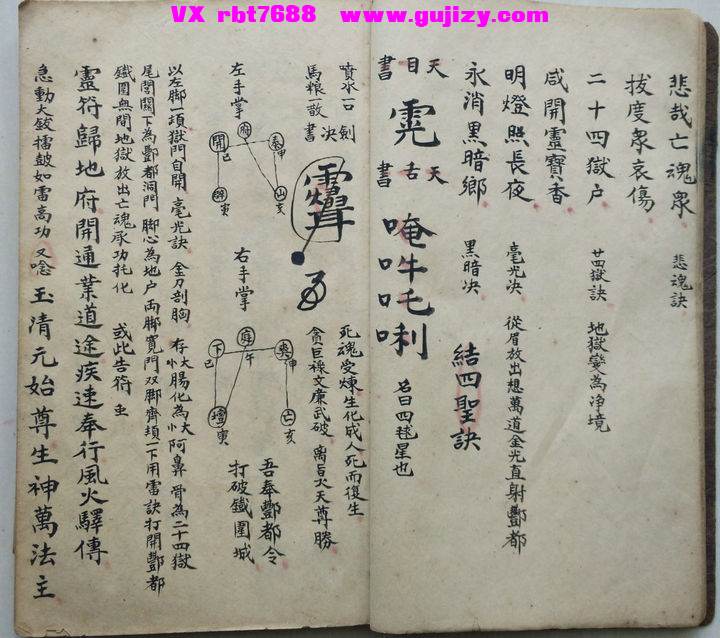 VX rbt7688 www.gujizy.com
悲哉亡魂衆 悲魂訣
拔度衆哀傷
二十四獄户 廿四獄訣 地獄變為净境
咸開靈寶香
明燈照長夜 毫光决 從眉放出想萬道金光直射酆都
永消黑暗鄉 黑暗决 結四聖訣
天目書
天舌書
唵吽吒唎 名曰四毬星也
死魂受煉生化成人死而復生
噴水口劍决
馬粮敢書
貪巨禄文廉武破 离旨火天尊勝
左手掌 府 秦申 開巳 山亥 寅
右手掌 庭午 奥申 下巳 亡亥 壇寅
吾奉酆都令
打破鐵圍城
以左脚一項獄門自開 毫光訣 金刀剖胸 存大腸化為大阿鼻 小腸為小 骨為二十四獄
尾閭關下為酆都洞門 脚心為地户 両脚寛門双脚齊頓一下用雷訣打開酆都
鐵圍無間地獄放出亡魂承功托化 或此告符 圭
靈符歸地府開通業道途疾速奉行風火驛傳
急動大鈸擂鼓如雷高功 又唸 玉清元始尊生神萬法主